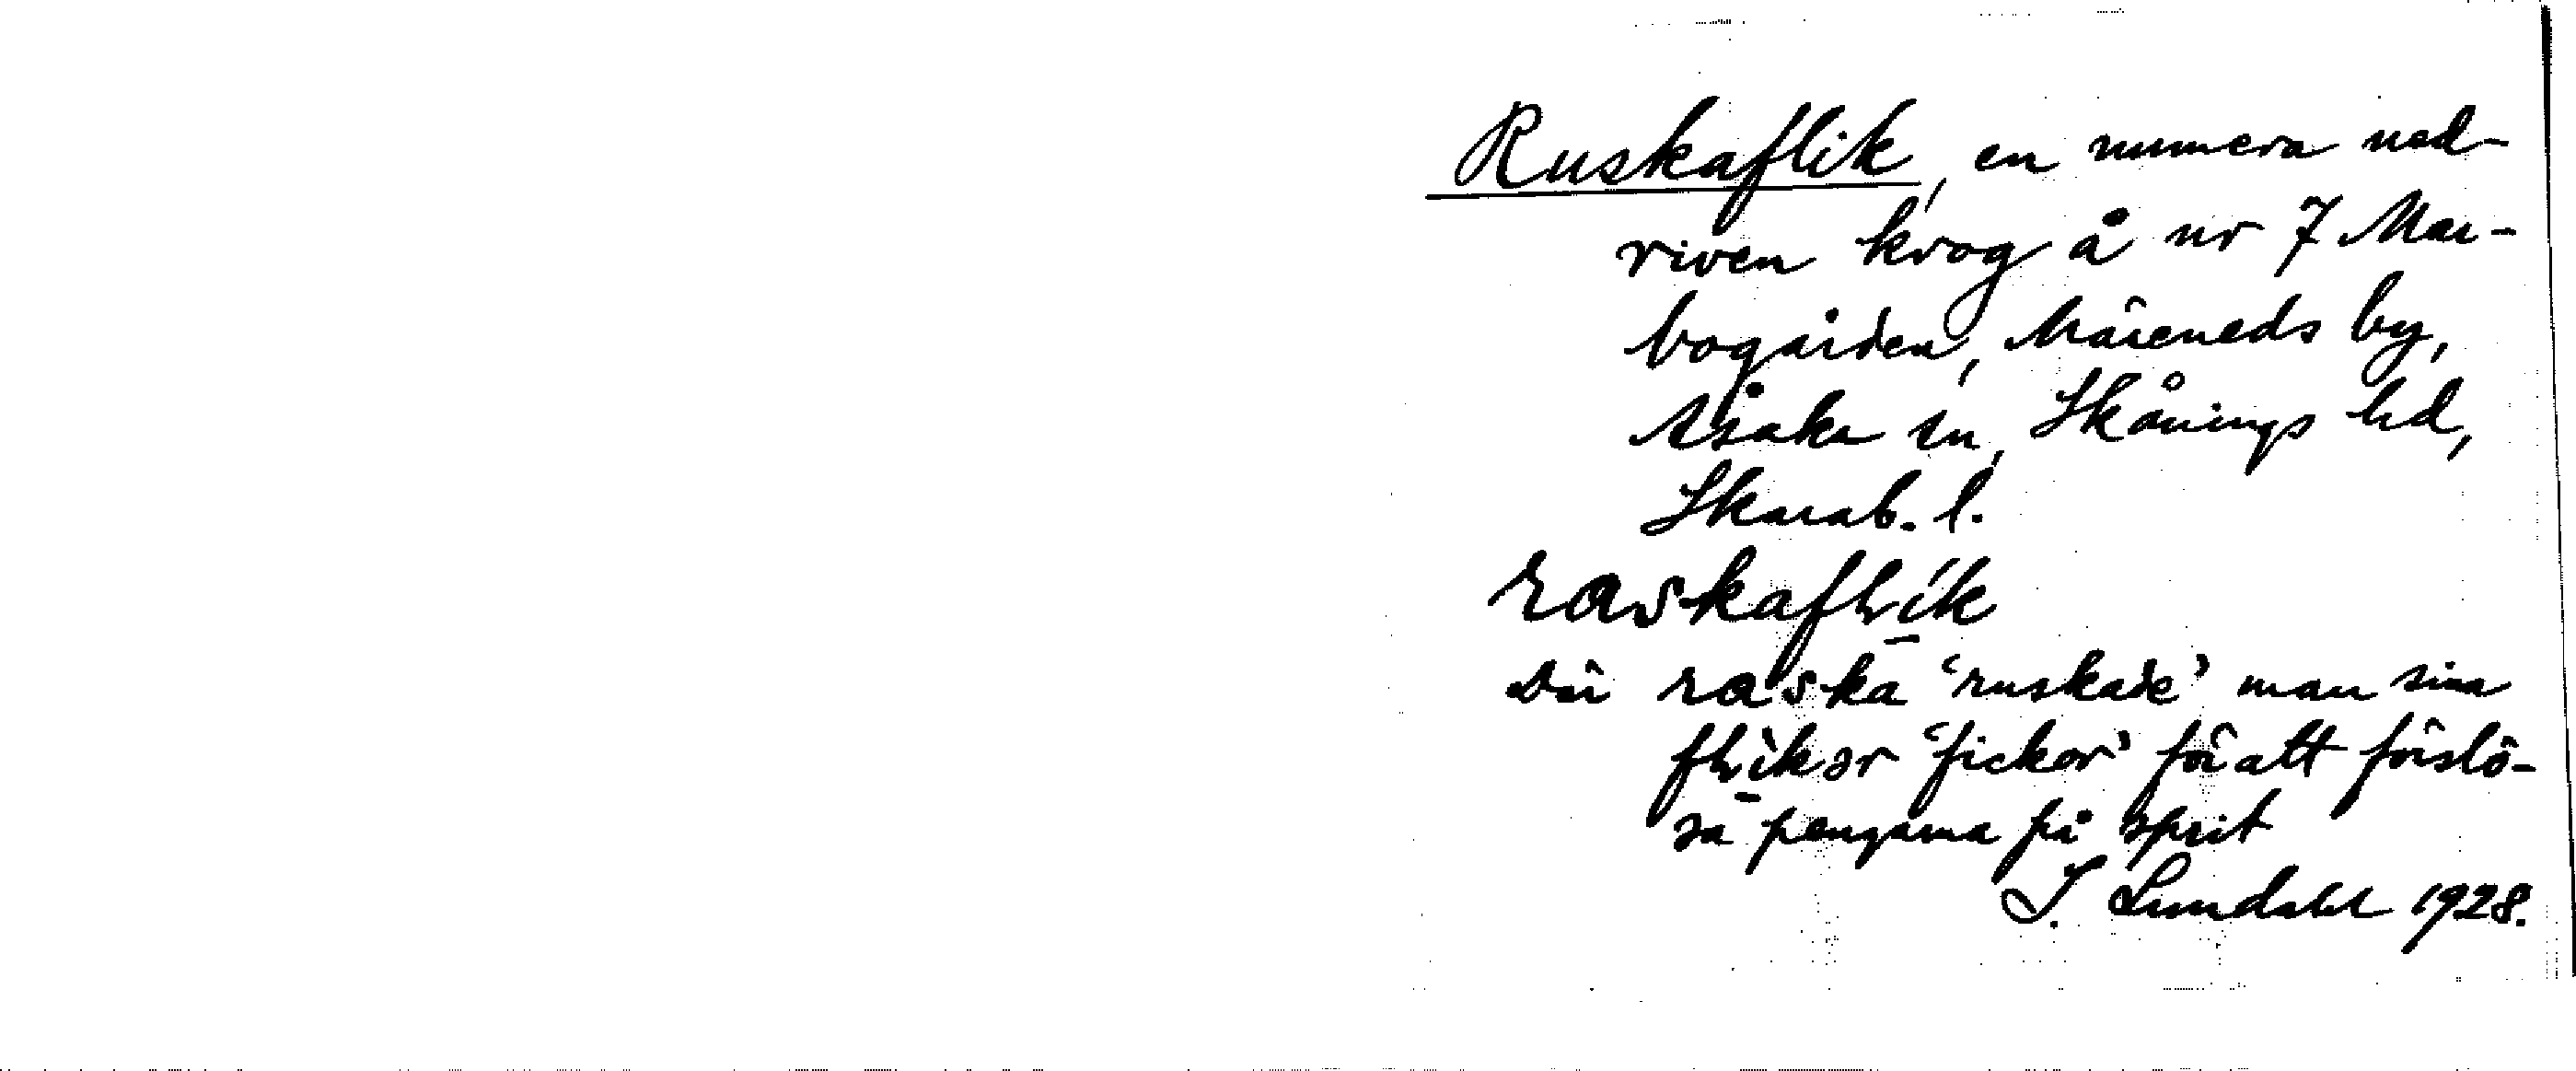 Ruskaflik, en numera ned-
riven krog å nr 7 Mar-
bogården, Måreneds by,
Åsaka sn, Skånings hd,
Skarab. l.
raskaflik
Där raska 'ruskade' man sina
flikər 'fickor' för att förslö-
sa pengarna på sprit
I. Lundahl 1928.